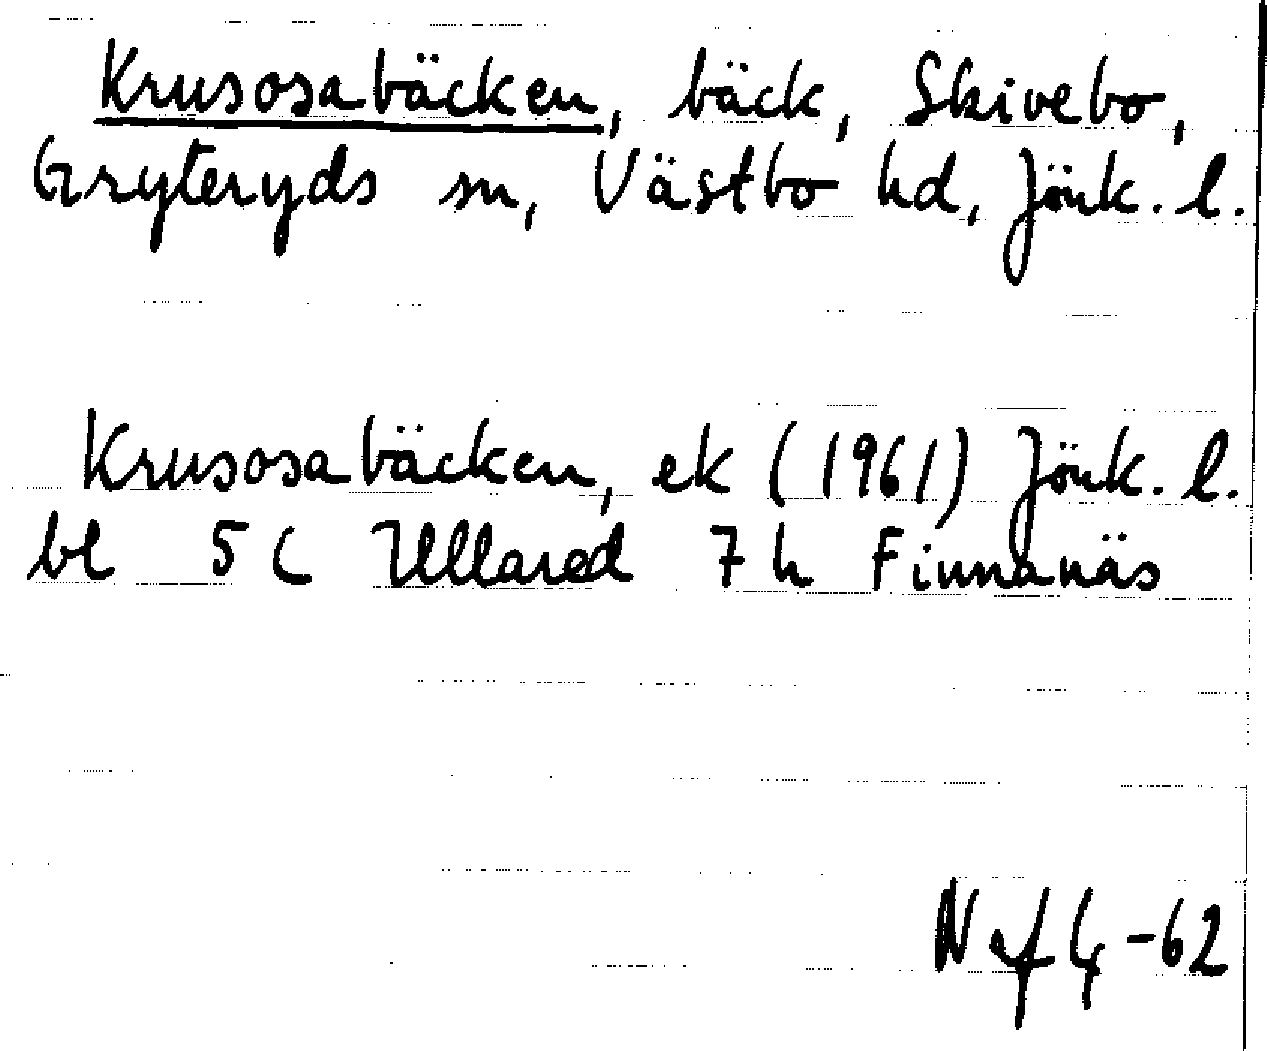 Krusosabäcken, bäck, Skivebo,
Gryteryds sn, Västbo hd, Jönk. l.
Krusosabäcken, ek (1961) Jönk. l.
bl 5 C Ullared 7 h Finnanäs
-62